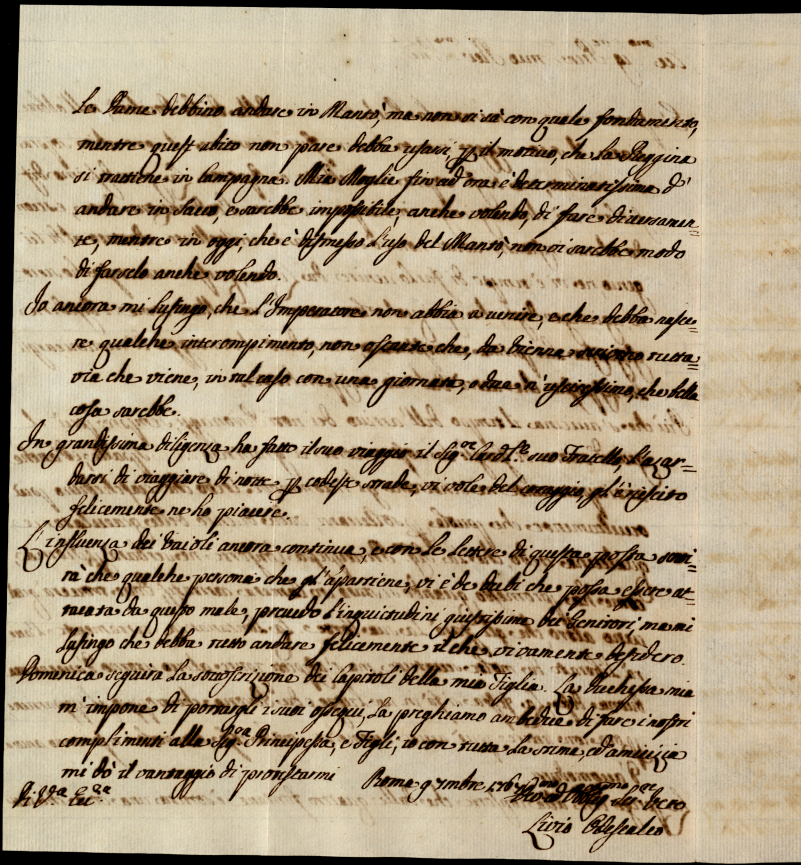 Le Dame debbino andare in Mantò, ma non si sà con quale fondamento,
mentre quest abito non pare debba usarsi p il motivo, che La Reggina
si trattiene in Campagna. Mia Moglie fin ad ora è determinatissima d'
andare in Sacco, e sarebbe impossibile, anche volendo, di fare diversamen=
te, mentre in oggi, che è dismesso l'uso del Mantò, non vi sarebbe modo
di farselo anche volendo.
Io ancora mi lusingo, che l'Imperatore non abbia a venire, e che debba nasce=
re qualche interrompimento, non ostante che, da Vienna tutta=
via che viene, in tal caso con una giornata, o due n'usciressimo, che bella
cosa sarebbe.
In grandissima diligenza ha fatto il suo viaggio il Sig.re Card.le suo Fratello, L'azar=
darsi di viaggiare di notte p codeste strade, vi vole del coraggio, gl'è riuscito
felicemente ne ho piacere.
L'influenza dei Vaioli ancora continua, e con Le Lettere di questa posta
rà che qualche persona che gl'apartiene, vi è de dubi che possa essere at=
taccata da questo male, prevedo l'inquietudini giustissime dei Genitori, ma mi
lusingo che debba tutto andare felicemente il che vivamente desidero.
Domenica seguirà La sottoscrizione dei Capitoli della mia Figlia. La Duchessa mia
m'impone di portargli i suoi ossequi, La preghiamo ambedue di fare i nostri
complimenti alla Sig.ra Principessa, e Figli, io con tutta La stima, ed amicizia
mi dò il vantaggio di protestarmi Roma 9 7mbre 176
Di V.a Ecc.a Ser.re Vero
Livio Odescalco